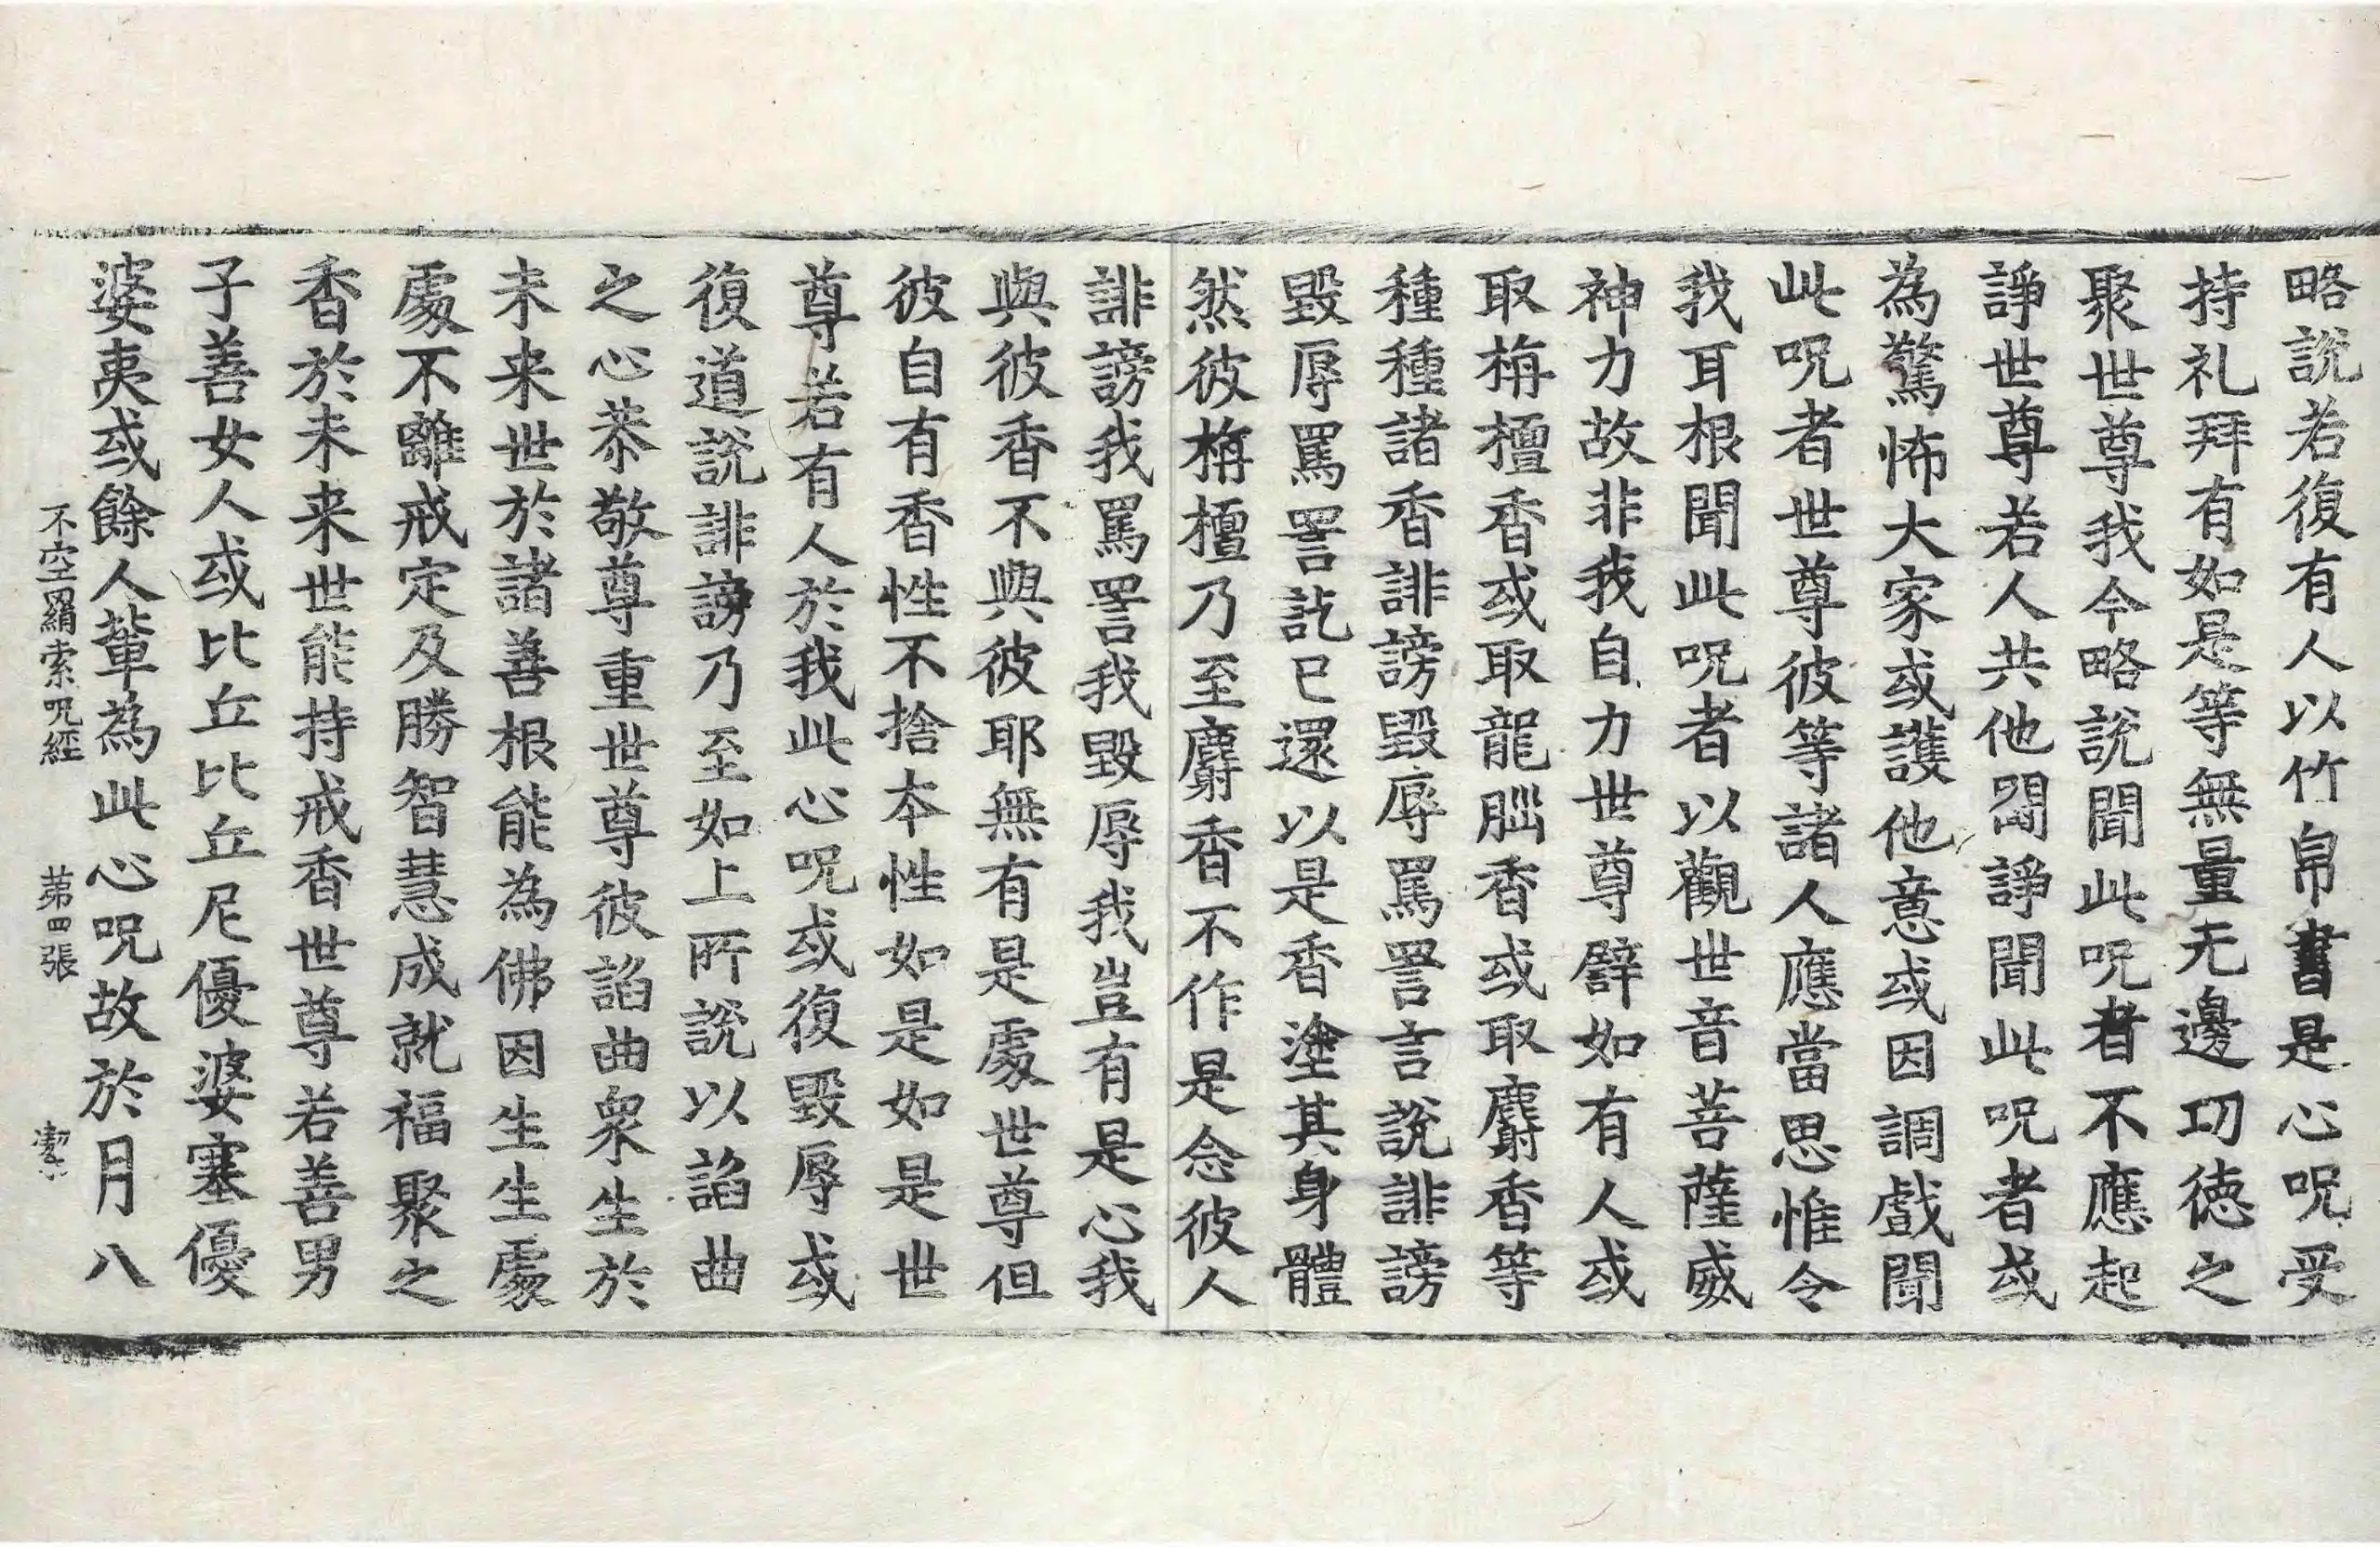 略說若復有人以竹帛書是心呪受
持礼拜有如是等無量无邊功徳之
聚世尊我今略說聞此呪者不應起
諍世尊若人共他鬪諍聞此呪者或
為驚怖大家或護他意或因調戲聞
此呪者世尊彼等諸人應當思惟令
我耳根聞此呪者以觀世音菩薩威
神力故非我自力世尊譬如有人或
取栴檀香或取龍腦香或取麝香等
種種諸香誹謗毀辱罵詈言說誹謗
毀辱罵詈訖已還以是香塗其身體
然彼栴檀乃至麝香不作是念彼人
誹謗我罵詈我毀辱我豈有是心我
與彼香不與彼耶無有是處世尊但
彼自有香性不捨本性如是如是世
尊若有人於我此心呪或復毀辱或
復道說誹謗乃至如上所說以諂曲
之心恭敬尊重世尊彼諂曲衆生於
未来世於諸善根能為佛因生生處
處不離戒定及勝智慧成就福聚之
香於未来世能持戒香世尊若善男
子善女人或比丘比丘尼優婆塞優
婆夷或餘人輩為此心呪故於月八
不空羂索呪經　第四張